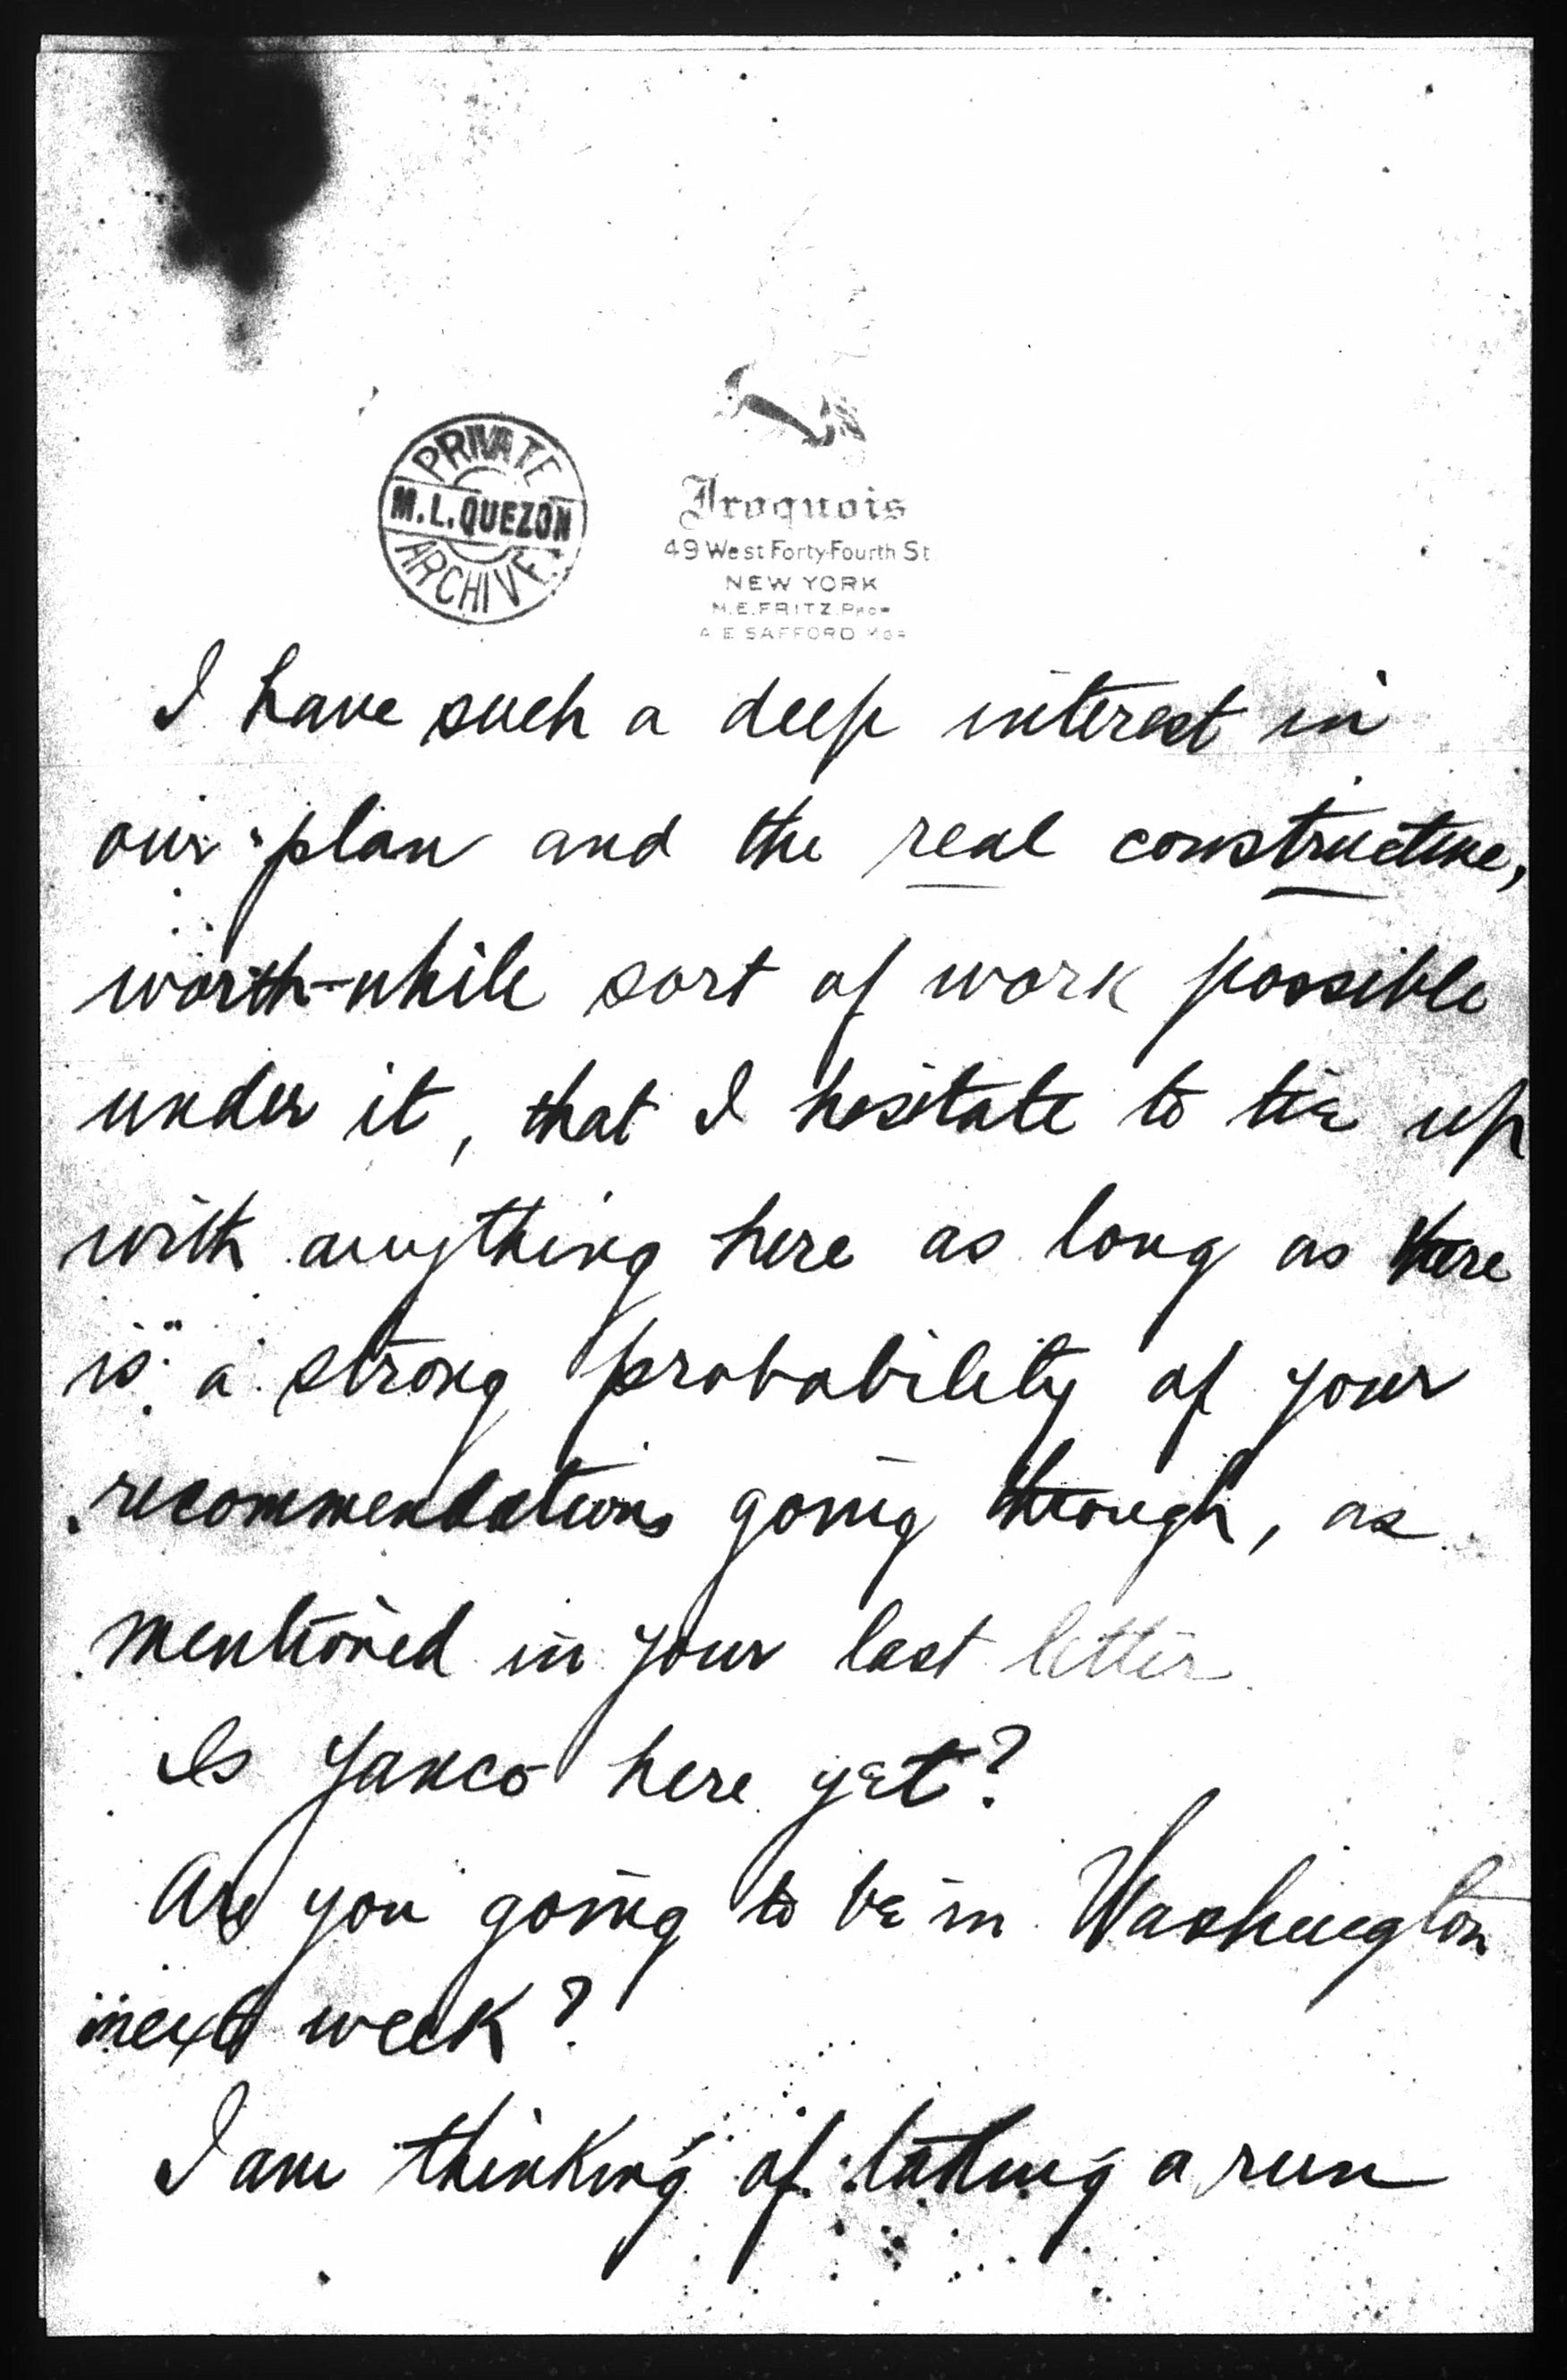 PRIVATE
M.L.QUEZON
ARCHIVE
Iroquois
49 West Forty-Fourth St
NEW YORK
M.E.FRITZ.PROP
A E SAFFORD MGR
I have such a deep interest in
our plan and the real constructive,
worth-while sort of work possible
under it, that I hesitate to tie up
with anything here as long as there
is a strong probability of your
recommendations going through, as
mentioned in your last letter.
Is Yanco here yet?
Are you going to be in Washington
next week?
I am thinking of taking a run